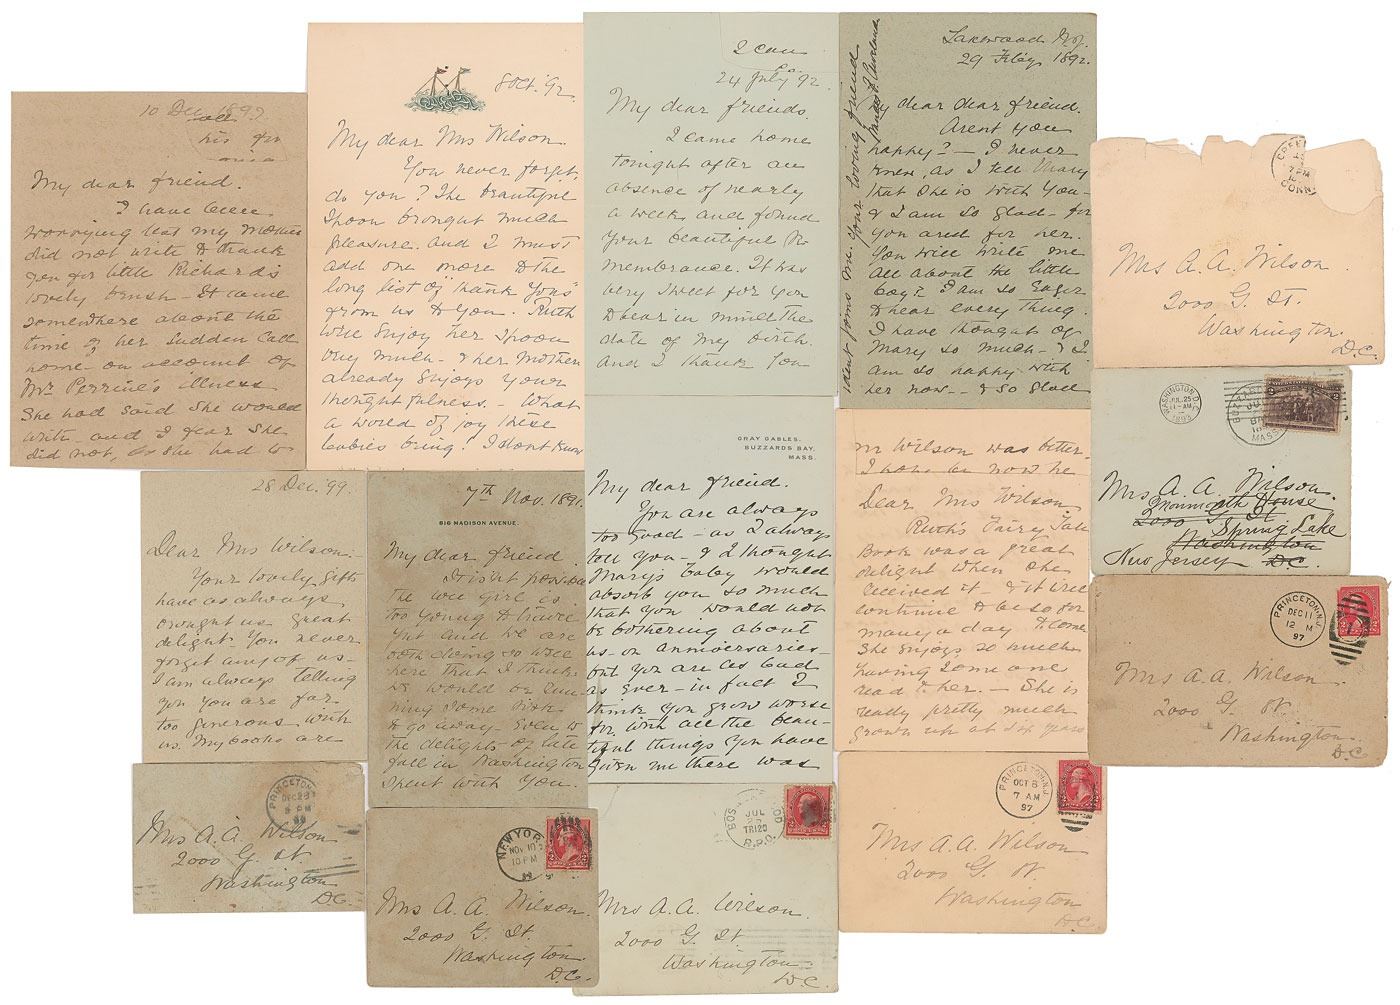 10 Dec 1897
My dear friend.
I have been
worrying lest my mother
did not write & thank
you for little Richard's
lovely brush - It came
somewhere about the
time of her sudden call
home - on account of
Mr Perrine's illness
She had said she would
write - and I fear she
did not, as she had to
8 Oct. '92.
My dear Mrs Wilson
You never forget,
do you? The beautiful
spoon brought much
pleasure. and I must
add one more to the
long list of "thank yous"
from us to you. Ruth
will enjoy her spoon
very much - & her mother
already enjoys your
thoughtfulness. - What
a world of joy these
babies bring! I don't know
24 July '92.
My dear friends.
I came home
tonight after an
absence of nearly
a week and found
your beautiful re
membrance. It was
very sweet for you
to bear in mind the
date of my birth
and I thank you
Lakewood N.J.
29 Feby 1892.
My dear dear friend.
Arent you
happy? - I never
knew, as I tell Mary
that she is with you -
& I am so glad - for
you and for her.
You will write me
all about the little
boy? I am so eager
to hear every thing.
I have thought of
Mary so much - & I
am so happy with
her now - & so glad
ident joins me. Your loving friend
Frances F. Cleveland
28 Dec. '99.
Dear Mrs Wilson.
Your lovely gifts
have as always
brought us great
delight. You never
forget any of us -
I am always telling
you you are far
too generous with
us. My books are
7th Nov. 1891.
816 MADISON AVENUE.
My dear friend
It isn't possible
the wee girl is
too young to travel
yet and we are
both doing so well
here that I think
we would be run-
ning some risk
to go away - even to
the delights of late
fall in Washington
spent with you.
GRAY GABLES.
BUZZARDS BAY.
MASS.
My dear friend.
You are always
too good - as I always
tell you - & I thought
Mary's baby would
absorb you so much
that you would not
be bothering about
us - on anniversaries -
but you are as bad
as ever - in fact I
think you grow worse
for with all the beau-
tiful things you have
given me there was
Mr Wilson was better.
I hope by now he
Dear Mrs Wilson
Ruth's Fairy Tale
Book was a great
delight when she
received it - & it will
continue to be so for
many a day to come
She enjoys so much
having some one
read to her. - She is
really pretty much
grown up at six years
CONN.
Mrs A. A. Wilson.
2000 G. St.
Washington.
D.C.
WASHINGTON, D.C.
JUL 25
11-AM
MASS.
Mrs A. A. Wilson.
Monmouth House
2000 G St
Spring Lake
Washington
New Jersey D.C.
PRINCETON, N.J.
DEC 11
12 M
97
Mrs A. A. Wilson.
2000 G. St.
Washington.
D.C.
PRINCETON
DEC 28
Mrs A. A. Wilson
2000 G. St.
Washington
D.C.
NEW YORK
NOV 10
10 PM
Mrs A. A. Wilson.
2000 G. St.
Washington.
D.C.
JUL
TR120
R.P.O.
Mrs A. A. Wilson.
2000 G. St.
Washington.
D.C.
PRINCETON, N.J.
OCT 8
7 AM
97
Mrs A. A. Wilson
2000 G. St.
Washington
D.C.